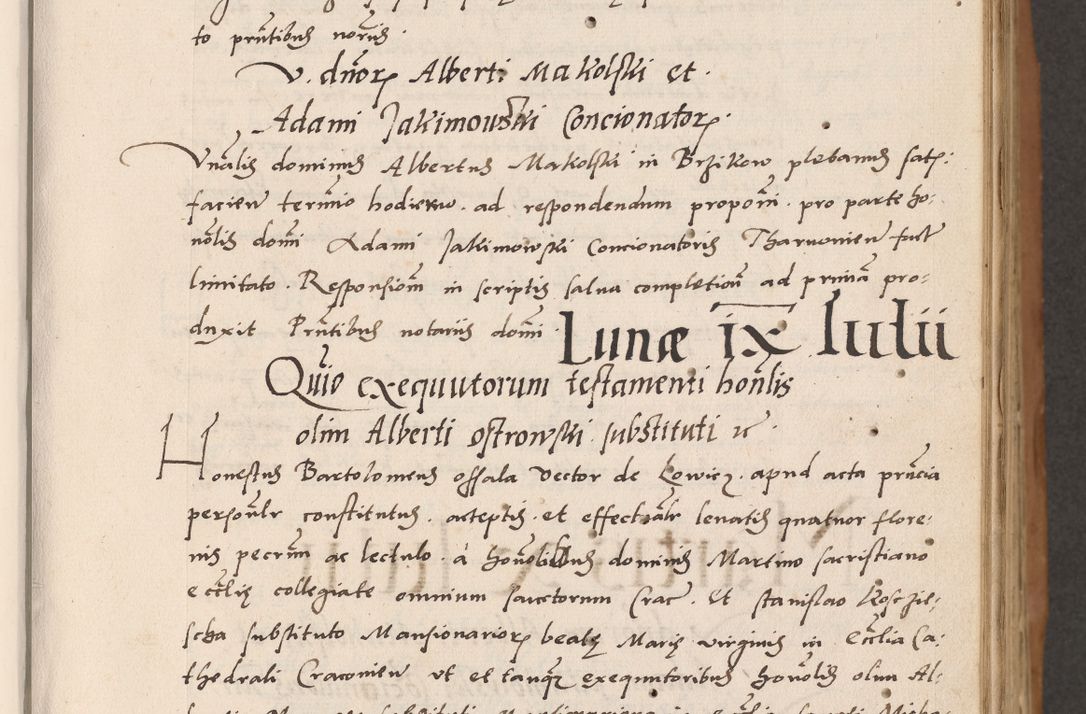 to prñtibus notariis.
V. dñorꝝ Alberti Makolski et.
Adami Jakimowski Concionatorꝝ.
Vnalis dominus Albertus Makolski in Brzikow plebanus satis
facien termino hodierno. ad respondendum propoñi. pro parte ho:
nolis domi Adami Jakimowski Concionatoris Tharnonien fact
limitato. Responsionẽ in scriptis salua completionẽ ad primã pro:
duxit Prñtibus notariis domi
Lunæ IX Iulii
Quito exequutorum testamenti honlis
olim Alberti Ostrowski substituti ic.
Honestus Bartolomeus ossala Vector de Lowicz. apud acta prñcia
personlr constitutus. acceptis et effectualr leuatis quatuor flore:
nis pecrum ac lectulo. à honolibus dominis Martino sacristiano
ecclię collegiate omnium sanctorum Crac. et stanislao Koszie:
scha substituto Mansionariorꝝ beatę Marię virginis in Ecclia Ca:
thedrali Cracouien vt et tanqꝫ exequutoribus honolis olim Al: